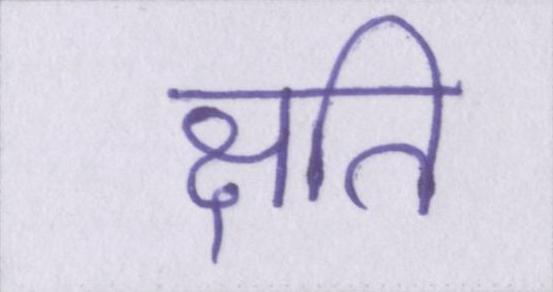 क्षति